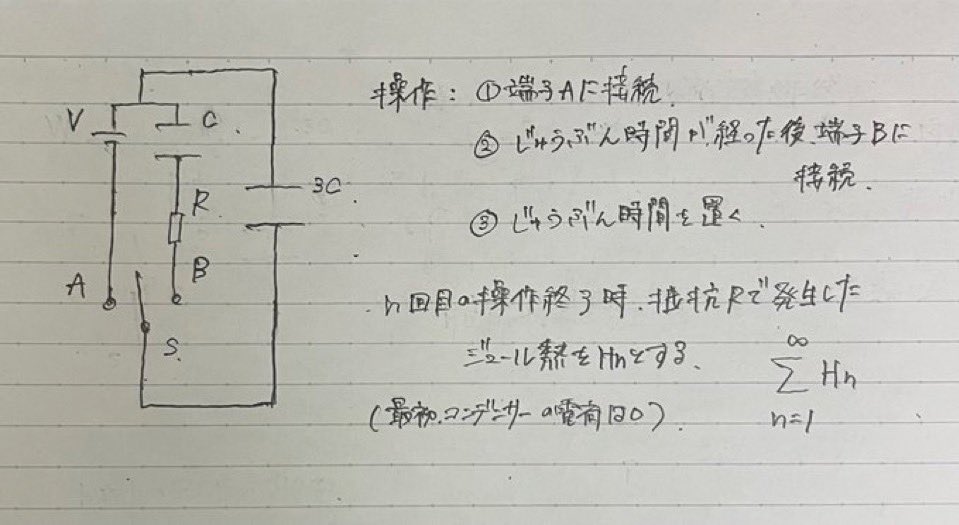 操作: ①端子Aに接続.
V
C
②じゅうぶん時間が経った後、端子Bに
接続.
3C
R
③じゅうぶん時間を置く.
B
A
n回目の操作終了時、抵抗Rで発生した
S.
ジュール熱をHnとする.
∞
Σ Hn
n=1
(最初、コンデンサーの電荷は0).